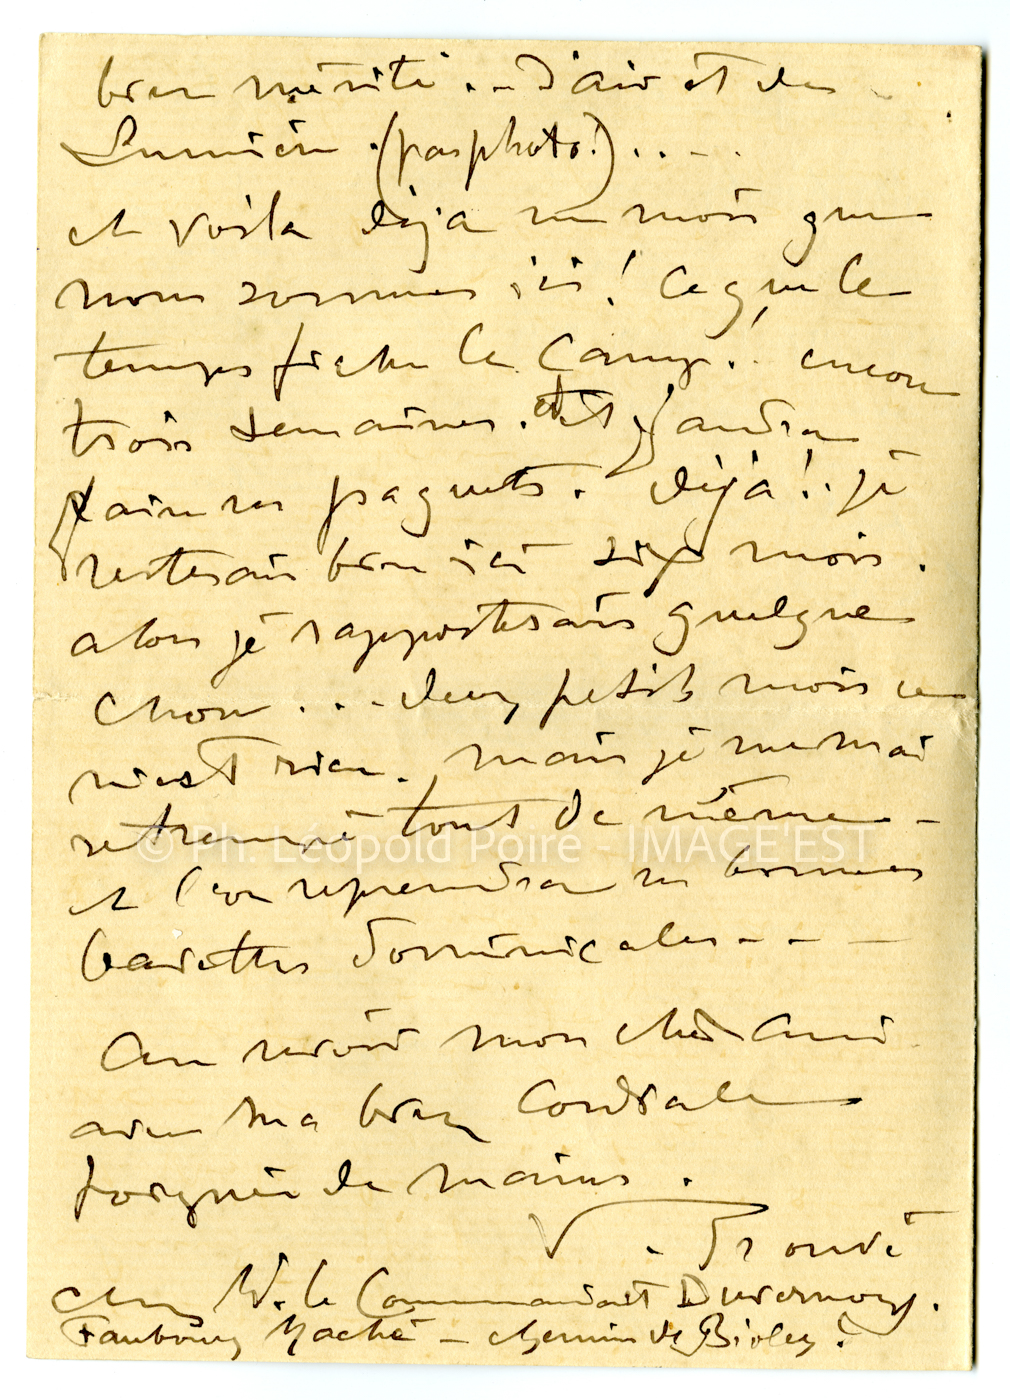 bien mérité... d'air et de
Lumière. (pas photo!)....
et voila déja un mois que
nous sommes ici! Ce que le
temps fiche le Camp!. encore
trois semaines. et il faudra
faire ses paquets. déjà!. je
resterais bien ici six mois.
alors je rapporterais quelque
chose... deux petits mois ce
n'est rien. mais je me serai
retrempé tout de même -
et l'on reprendra ses bonnes
bavettes dominicales - - -
Au revoir mon cher ami
avec ma bien Cordiale
poignée de mains.
V. Prouvé
chez M. le Commandant Duvernoy.
Faubourg Maché - chemin de Bioley.
© Ph. Léopold Poiré - IMAGE'EST